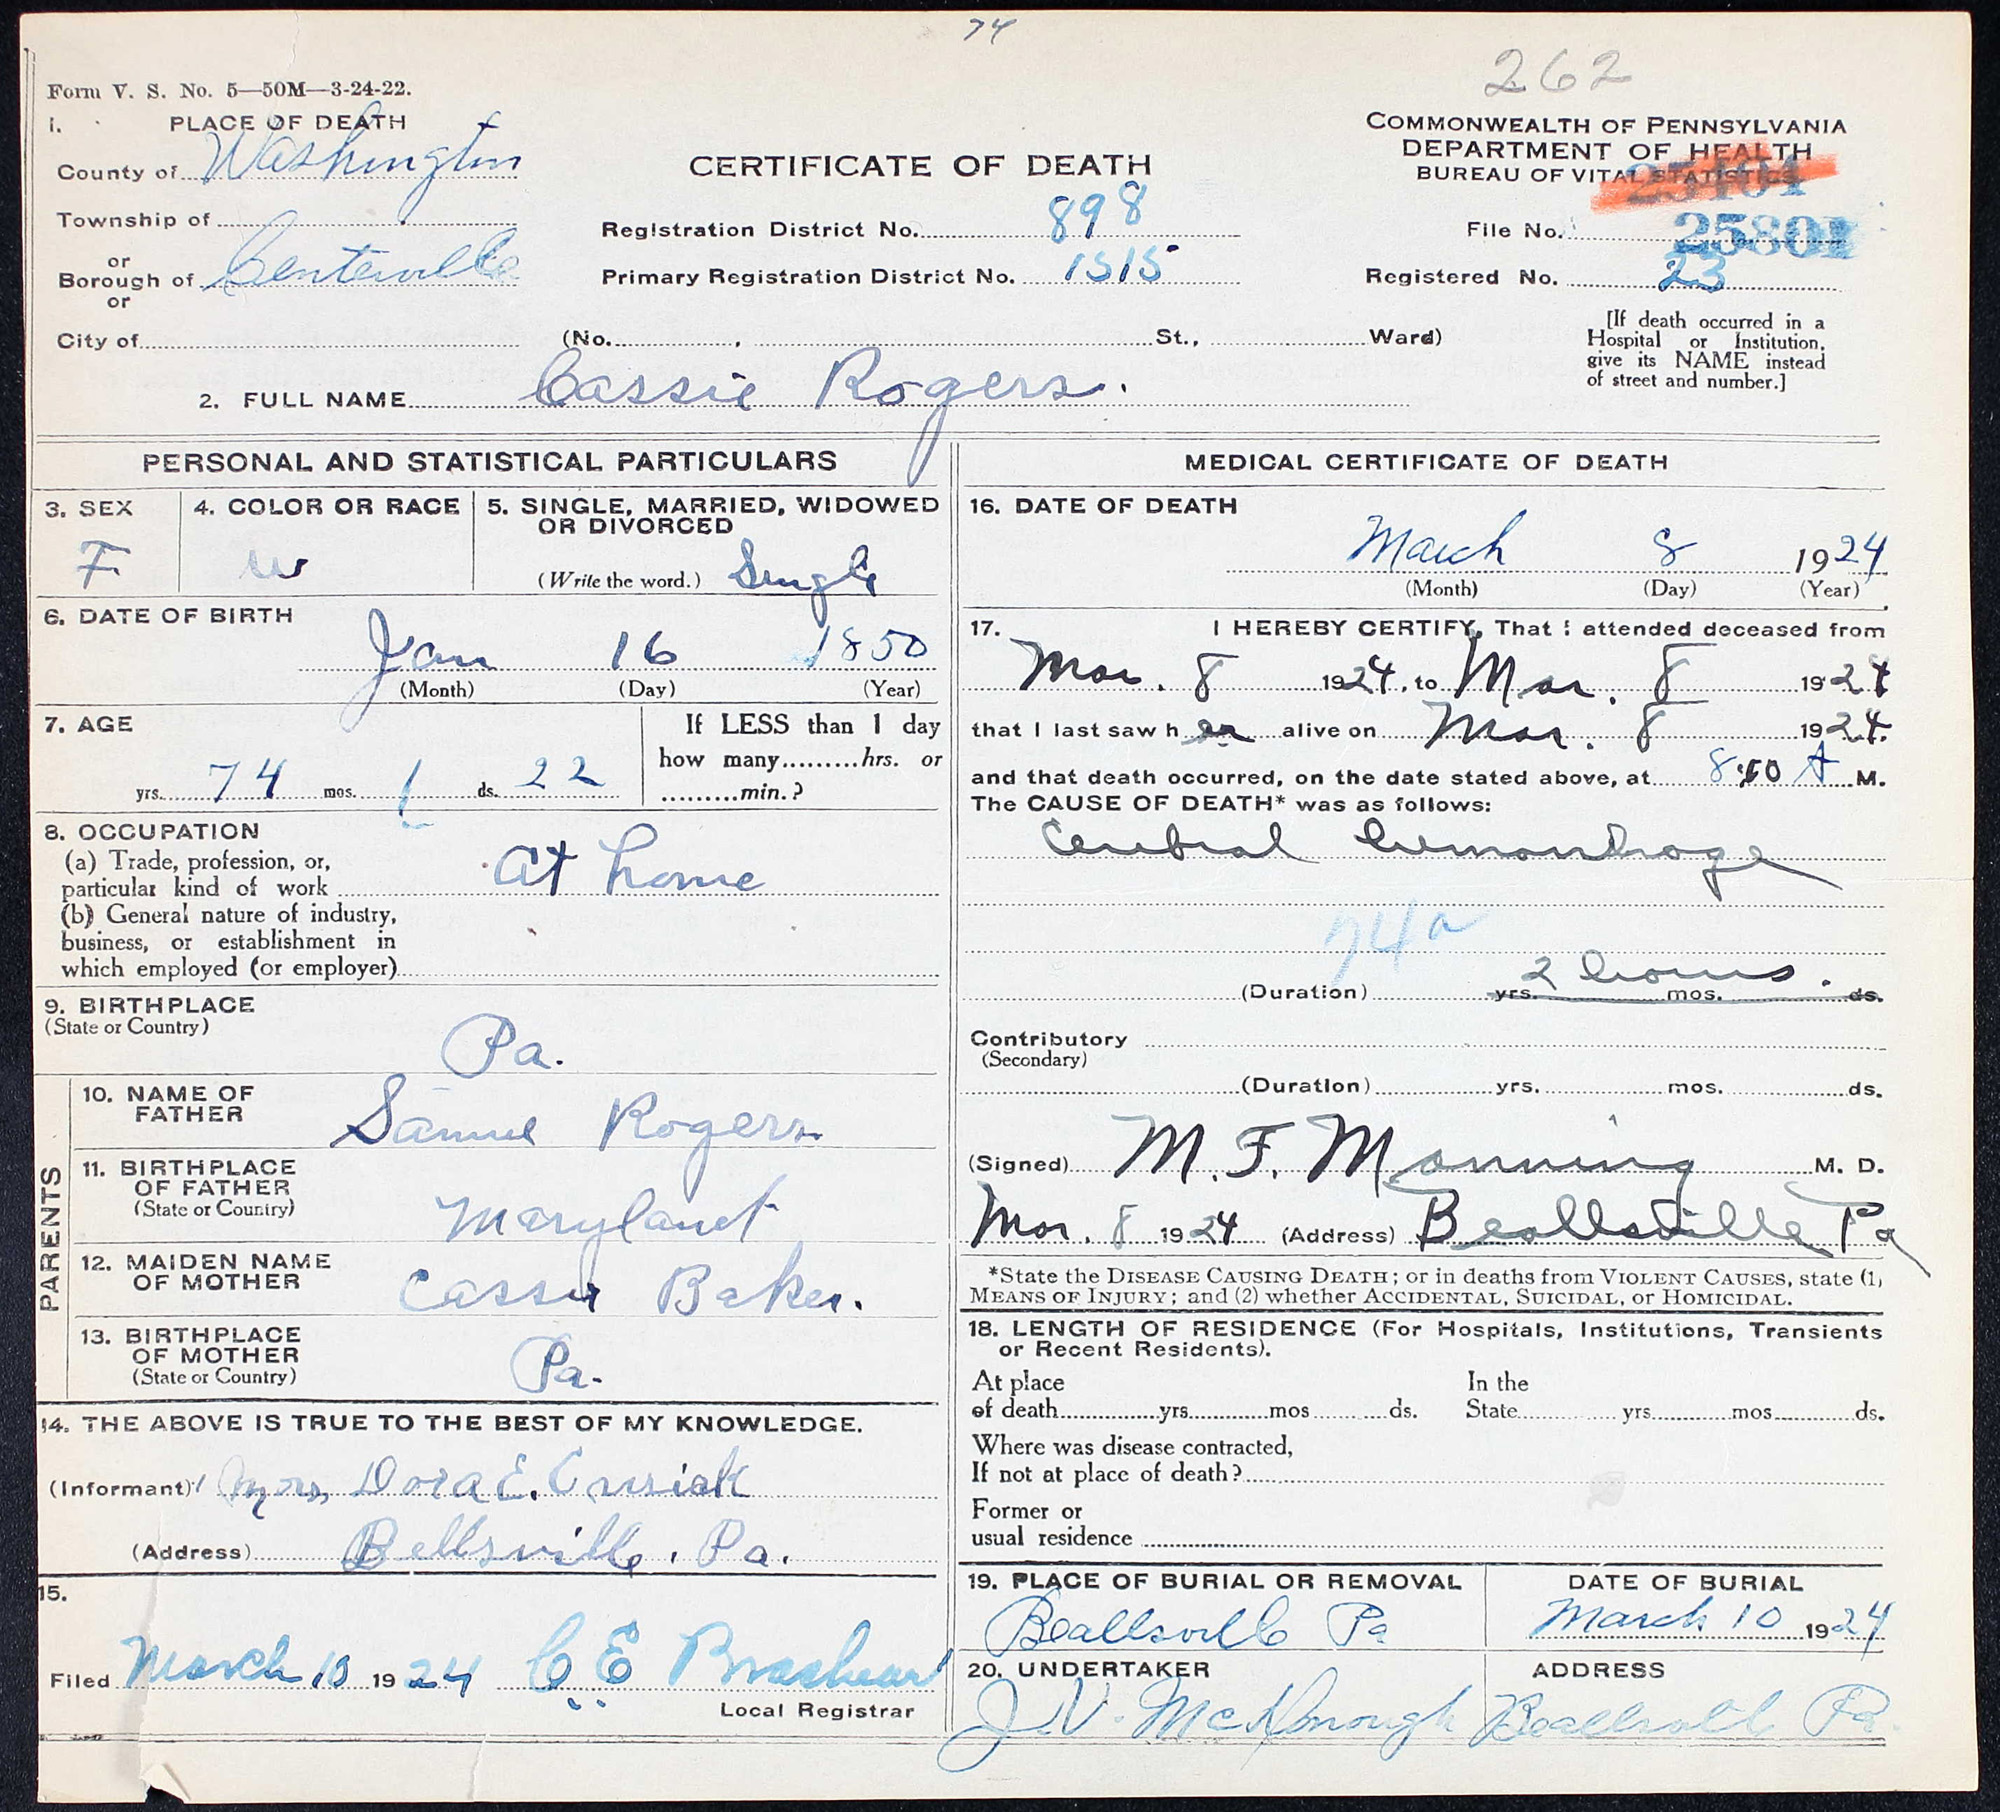 74
262
Form V. S. No. 5—50M—3-24-22.
1. PLACE OF DEATH
County of Washington
Township of
or
Borough of Centerville
or
City of
CERTIFICATE OF DEATH
Registration District No. 898
Primary Registration District No. 1515
(No. , St., Ward)
COMMONWEALTH OF PENNSYLVANIA
DEPARTMENT OF HEALTH
BUREAU OF VITAL STATISTICS
File No. 25801
Registered No. 23
[If death occurred in a
Hospital or Institution,
give its NAME instead
of street and number.]
2. FULL NAME Cassie Rogers.
PERSONAL AND STATISTICAL PARTICULARS
3. SEX
F.
4. COLOR OR RACE
W
5. SINGLE, MARRIED, WIDOWED
OR DIVORCED
(Write the word.) Single
6. DATE OF BIRTH
Jan 16 1850
(Month) (Day) (Year)
7. AGE
yrs. 74 mos. 1 ds. 22
If LESS than 1 day
how many hrs. or
min.?
8. OCCUPATION
(a) Trade, profession, or,
particular kind of work At home
(b) General nature of industry,
business, or establishment in
which employed (or employer)
9. BIRTHPLACE
(State or Country)
Pa.
PARENTS
10. NAME OF
FATHER
Samuel Rogers
11. BIRTHPLACE
OF FATHER
(State or Country)
Maryland
12. MAIDEN NAME
OF MOTHER
Cassie Baker.
13. BIRTHPLACE
OF MOTHER
(State or Country)
Pa.
14. THE ABOVE IS TRUE TO THE BEST OF MY KNOWLEDGE.
(Informant) Mrs, Dora E. Cusick
(Address) Bellsville, Pa.
15.
Filed March 10 1924 C E Brashear
Local Registrar
MEDICAL CERTIFICATE OF DEATH
16. DATE OF DEATH
March 8 1924
(Month) (Day) (Year)
17. I HEREBY CERTIFY, That I attended deceased from
Mar. 8 1924, to Mar. 8 1924
that I last saw h er alive on Mar. 8 1924.
and that death occurred, on the date stated above, at 8:10 A M.
The CAUSE OF DEATH* was as follows:
Cerebral hemorrhage
74a
2 hours.
(Duration) yrs. mos. ds.
Contributory
(Secondary)
(Duration) yrs. mos. ds.
(Signed) M. F. Manning M. D.
Mar. 8 1924 (Address) Beallsville Pa
*State the DISEASE CAUSING DEATH; or in deaths from VIOLENT CAUSES, state (1)
MEANS OF INJURY; and (2) whether ACCIDENTAL, SUICIDAL, or HOMICIDAL.
18. LENGTH OF RESIDENCE (For Hospitals, Institutions, Transients
or Recent Residents).
At place
of death yrs mos ds.
In the
State yrs mos ds.
Where was disease contracted,
If not at place of death?
Former or
usual residence
19. PLACE OF BURIAL OR REMOVAL
Beallsville Pa
DATE OF BURIAL
March 10 1924
20. UNDERTAKER
J. V. McDonough
ADDRESS
Beallsville Pa.